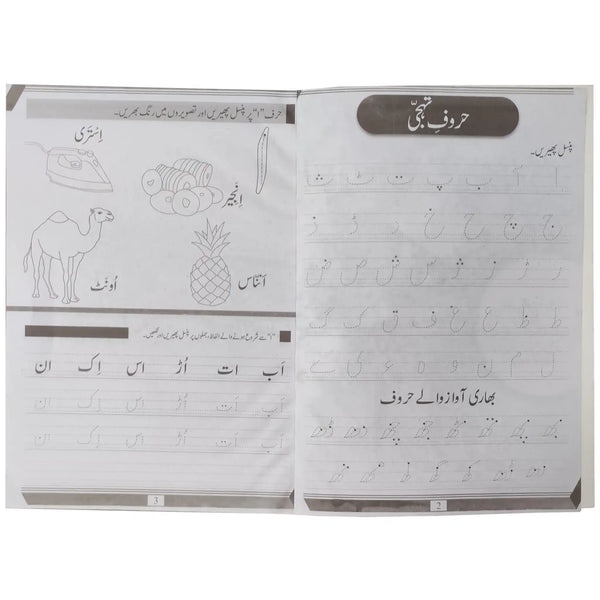 حروفِ تہجّی
پنسل پھیریں۔
ا آ ب پ ت ٹ ث
ج چ ح خ د ڈ ذ
ر ڑ ز ژ س ش ص ض
ط ظ ع غ ف ق ک گ
ل م ن و ہ ء ی ے
بھاری آواز والے حروف
بھ پھ تھ ٹھ جھ چھ دھ ڈھ
2
حرف "ا" پر پنسل پھیریں اور تصویروں میں رنگ بھریں۔
اِستری
اِنجیر
اُونٹ
اَنناس
"ا" سے شروع ہونے والے الفاظ/جملوں پر پنسل پھیریں اور لکھیں۔
اَب اَت اُڑ اس اِک ان
اَب اَت اُڑ اس اِک ان
اَب اَت اُڑ اس اِک ان
3